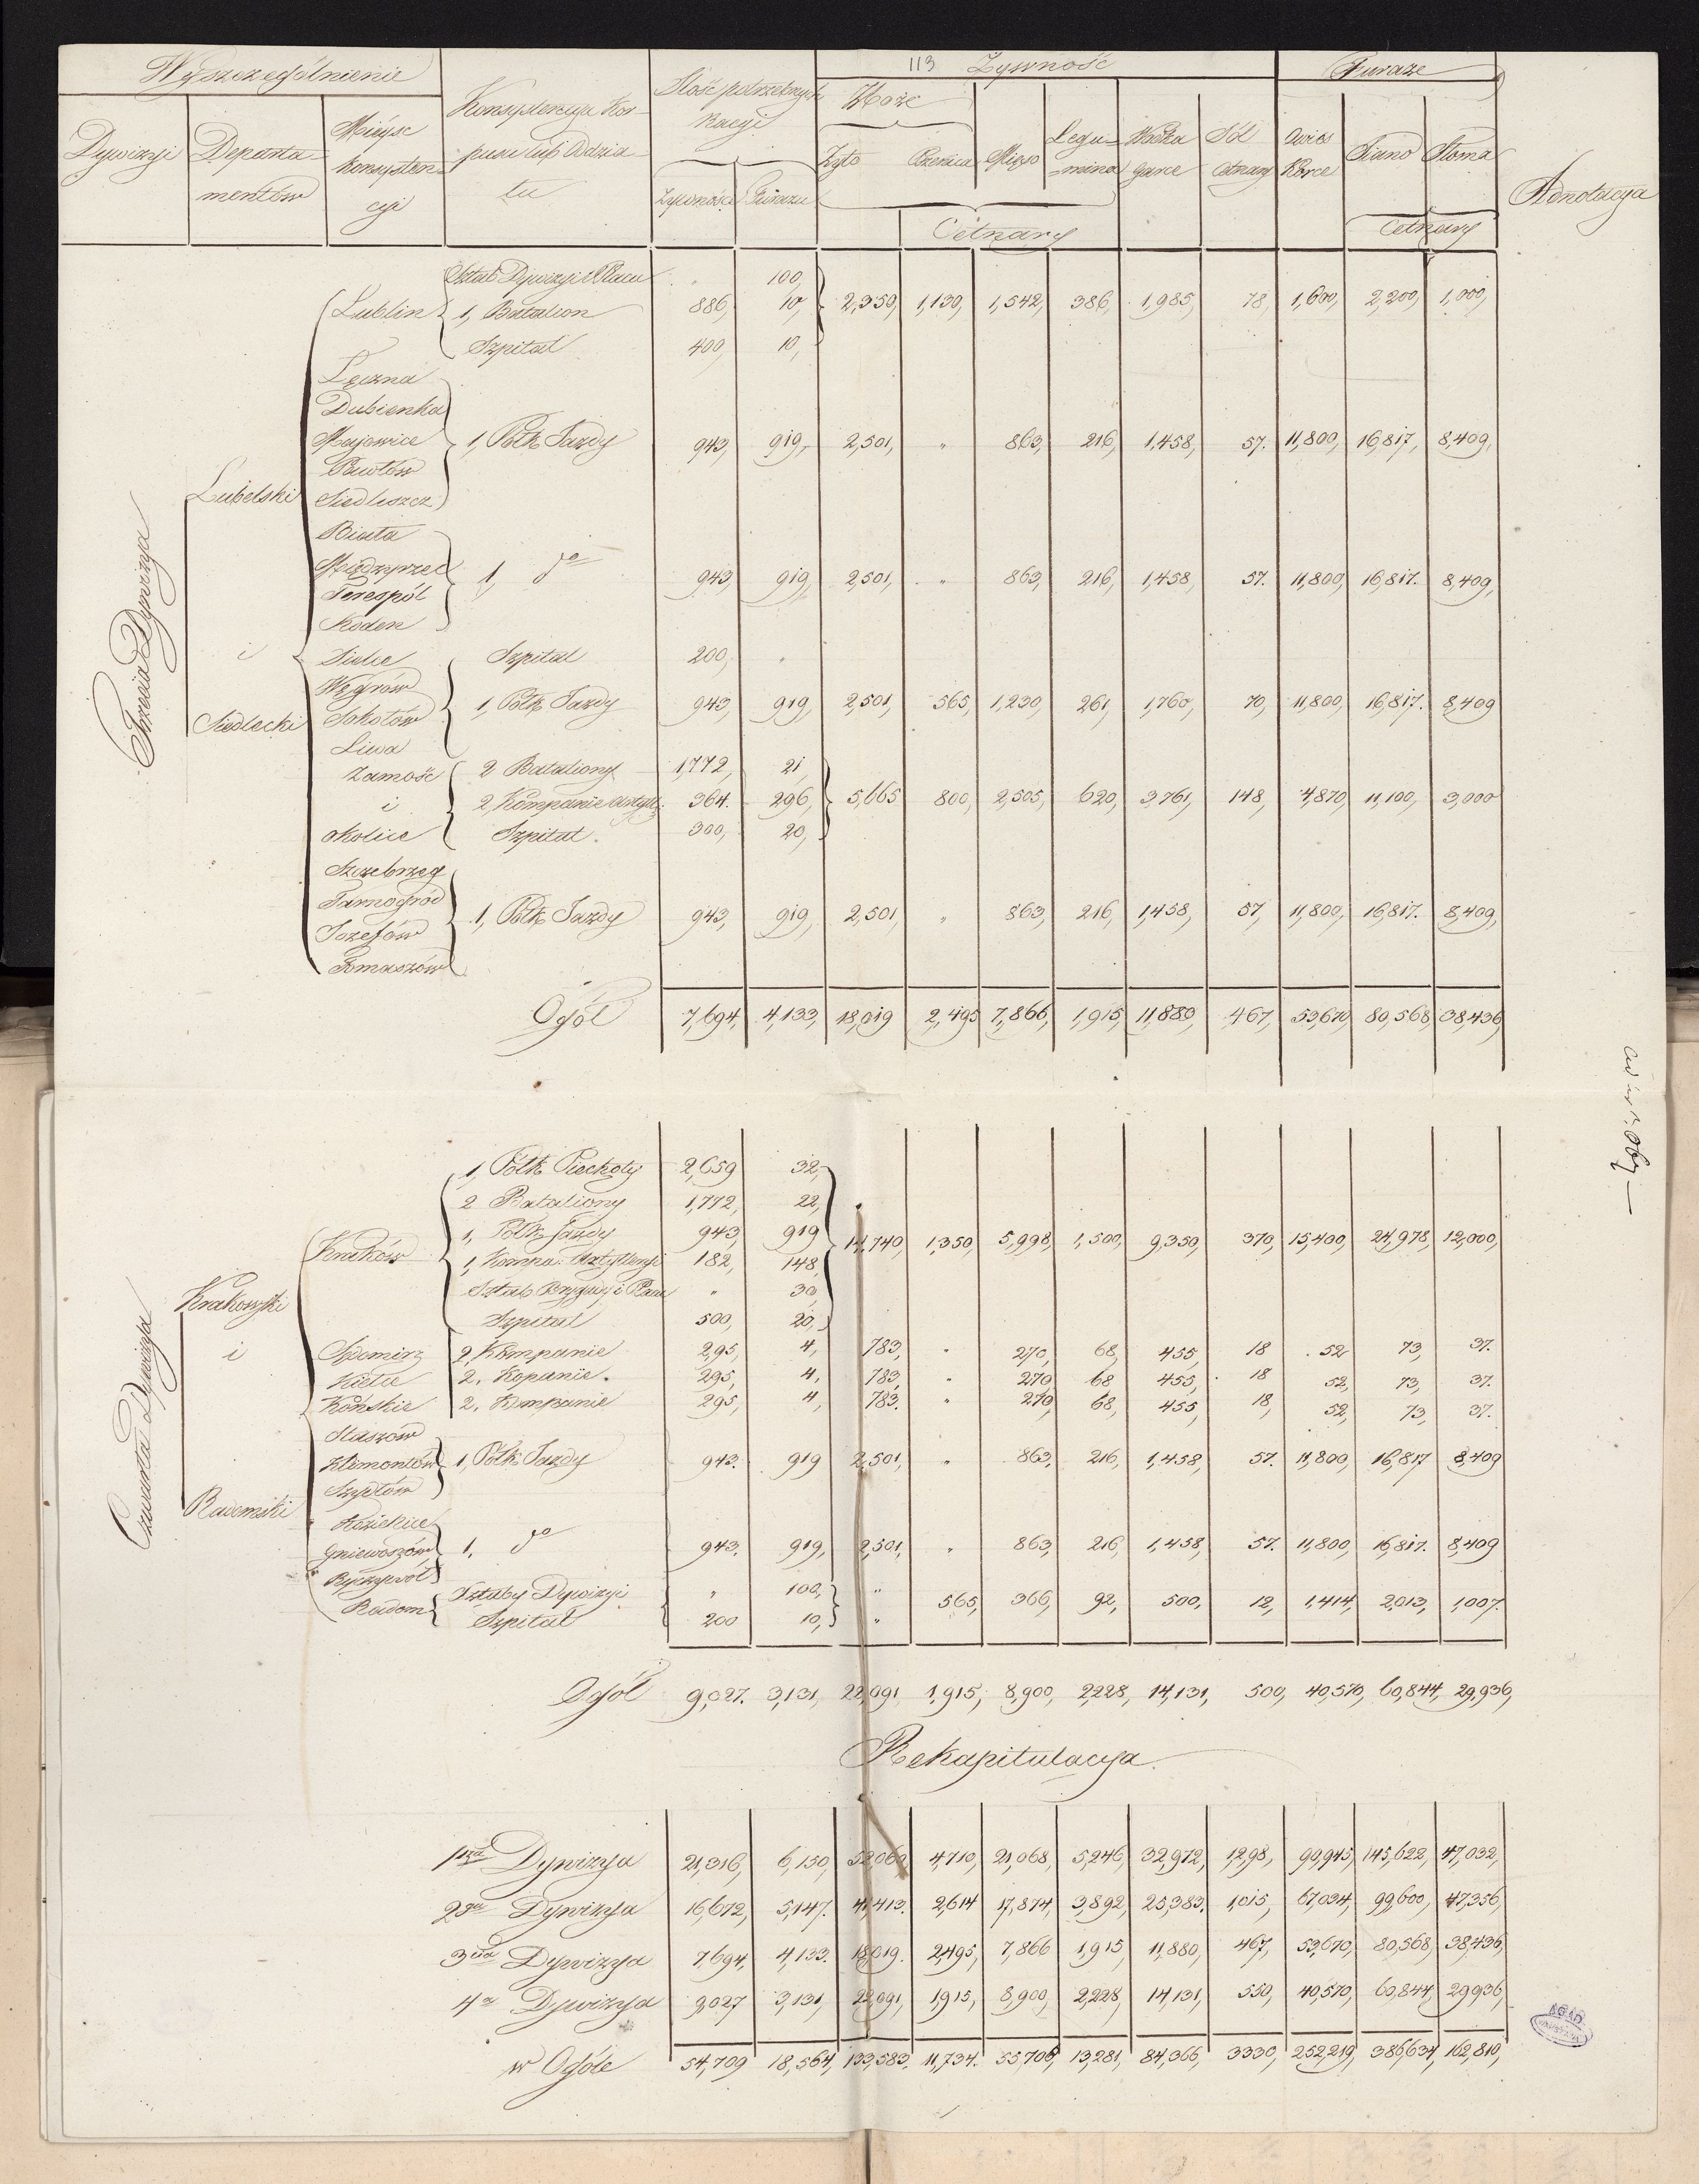 113
Wyszczególnienie
Dywizyi
Departa-
mentów
Mieysc
konsysten-
cyi
Konsystencya Kor-
pusu lub Oddzia-
łu
Ilość potrzebnych
Racyi
Żywności Furażu
Żywność
Zboże
Żyto Pszenica
Mięso
Legu-
mina
Wódka
garce
Sól
Cetnary
Cetnary
Furaże
Owies
Korce
Siano Słoma
Cetnary
Adnotacya
Trzecia Dywizya
Lubelski
i
Siedlecki
Sztab Dywizyi i Placu " 100,
Lublin 1, Batalion 886, 10, 2,350, 1,130, 1,542, 386, 1,985, 78, 1,600, 2,200, 1,000,
Szpital 400, 10,
Łęczna
Dubienka
Woyowice 1, Półk Jazdy 943, 919, 2,501, " 863, 216, 1,458, 57. 11,800, 16,817, 8,409,
Pawłów
Siedliszcz
Biała
Międzyrzec
1, do 943, 919, 2,501, " 863, 216, 1,458, 57. 11,800, 16,817. 8,409,
Terespól
Koden
Sielce Szpital 200, "
Węgrów
Sokołów 1, Półk Jazdy 943, 919, 2,501, 565, 1,230, 261, 1,760, 70, 11,800, 16,817. 8,409
Liwa
Zamość 2 Bataliony 1,772, 21,
i 2, Kompanie Artyl: 364. 296, 5,665 800, 2,505, 620, 3,761, 148, 4,870, 11,100, 3,000
okolice Szpital. 300, 20,
Szczebrzeg
Tarnogród
Jozefów 1, Półk Jazdy 943, 919, 2,501, " 863, 216, 1,458, 57, 11,800, 16,817. 8,409,
Tomaszów
Ogół 7,694, 4,133, 18,019 2,495 7,866, 1,915, 11,880, 467, 53,670 80,568, 38,436,
Czwarta Dywizya
Krakowski
i
Radomski
1, Półk Piechoty 2,659 32,
2 Bataliony 1,772, 22,
Kraków 1, Półk Jazdy 943, 919 14,740, 1,350, 5,998, 1,500, 9,350, 370, 15,400, 24,978, 12,000,
1, Kompa: Artyleryi 182, 148,
Sztab Brygady i Placu " 30,
Szpital 500, 20,
Sędomirz 2, Kompanie 295, 4, 783, " 270, 68, 455, 18 52 73, 37.
Kielce 2, Kopanie. 295, 4, 783, " 270 68 455, 18 52, 73, 37.
Końskie 2, Kompanie 295, 4, 783. " 270, 68, 455, 18, 52, 73, 37.
Staszów
Klimontów 1, Półk Jazdy 943. 919 2,501, " 863, 216, 1,458, 57. 11,800, 16,817 8,409
Szydłów
Kozienice
Gniewoszów 1, do 943. 919, 2,501, " 863, 216, 1,458, 57. 11,800, 16,817. 8,409
Ryczywół
Radom Sztaby Dywizyi " 100, " 565, 366, 92, 500, 12, 1,414, 2,013, 1,007.
Szpital 200 10, "
Ogół 9,027. 3,131, 22,091, 1,915, 8,900, 2,228, 14,131, 500, 40,570, 60,844, 29,936,
Rekapitulacya.
1sza Dywizya 21,316, 6,150, 52,060, 4,710, 21,068, 5,246, 32,972, 1,298, 90,945, 145,622, 47,032,
2ga Dywizya 16,672, 5,147. 41,413. 2,614 17,874, 3,892, 25,383, 1,015, 67,034, 99,600, 47,356,
3cia Dywizya 7,694, 4,133. 18,019. 2,495, 7,866 1,915 11,880, 467, 53,670, 80,568, 38,436,
4a Dywizya 9,027 3,131, 22,091, 1,915, 8,900, 2,228, 14,131, 550, 40,570, 60,844, 29,936,
w Ogóle 54,709 18,564, 133,583. 11,734. 55,708, 13,281, 84,366, 3330, 252,219, 386,634, 162,810,
AGAD